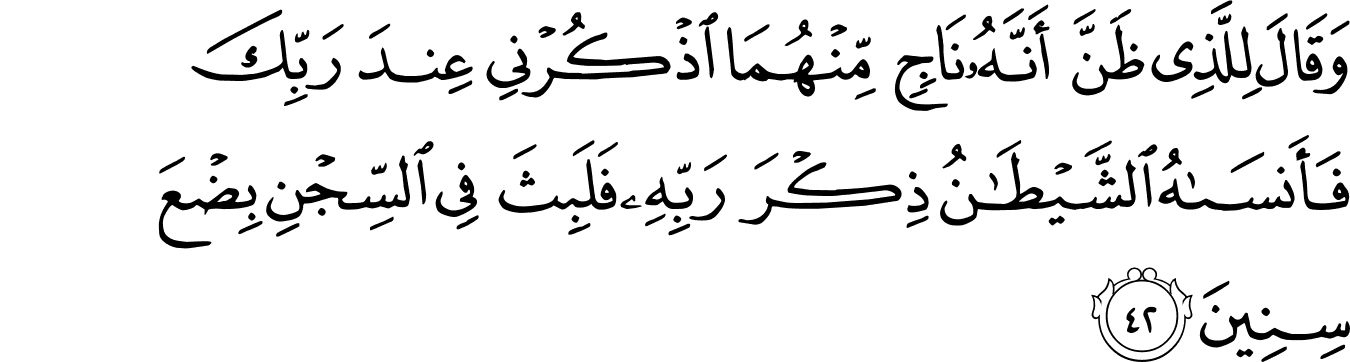 وَقَالَ لِلَّذِى ظَنَّ أَنَّهُۥ نَاجٍ مِّنْهُمَا ٱذْكُرْنِى عِندَ رَبِّكَ
فَأَنسَىٰهُ ٱلشَّيْطَٰنُ ذِكْرَ رَبِّهِۦ فَلَبِثَ فِى ٱلسِّجْنِ بِضْعَ
سِنِينَ ٤٢